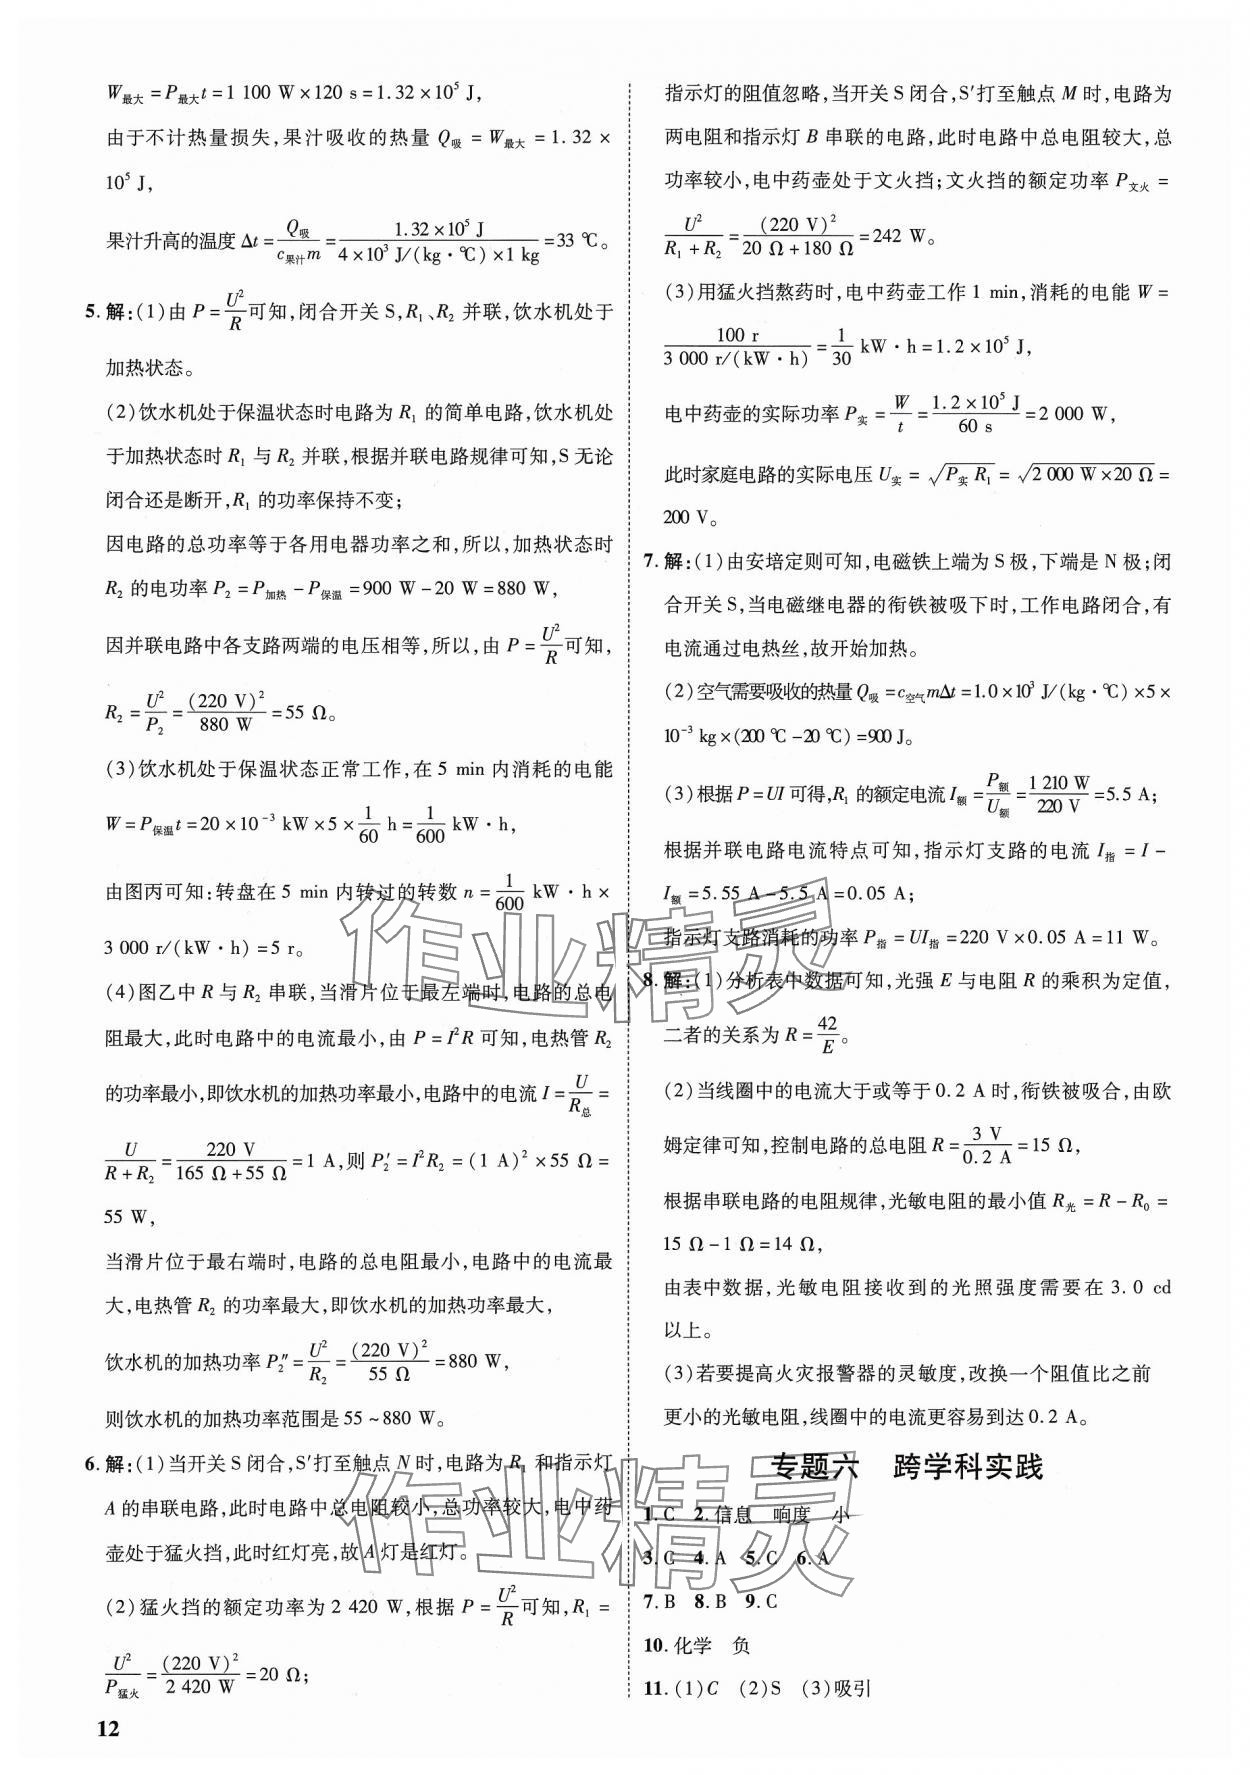 W最大 = P最大t = 1 100 W×120 s = 1.32×10⁵ J，
由于不计热量损失，果汁吸收的热量 Q吸 = W最大 = 1.32×
10⁵ J，
果汁升高的温度 Δt = Q吸/(c果汁m) = 1.32×10⁵ J/(4×10³ J/(kg·℃)×1 kg) = 33 ℃。
5. 解：(1)由 P = U²/R 可知，闭合开关 S，R₁、R₂ 并联，饮水机处于
加热状态。
(2)饮水机处于保温状态时电路为 R₁ 的简单电路，饮水机处
于加热状态时 R₁ 与 R₂ 并联，根据并联电路规律可知，S 无论
闭合还是断开，R₁ 的功率保持不变；
因电路的总功率等于各用电器功率之和，所以，加热状态时
R₂ 的电功率 P₂ = P加热 - P保温 = 900 W - 20 W = 880 W，
因并联电路中各支路两端的电压相等，所以，由 P = U²/R 可知，
R₂ = U²/P₂ = (220 V)²/880 W = 55 Ω。
(3)饮水机处于保温状态正常工作，在 5 min 内消耗的电能
W = P保温t = 20×10⁻³ kW×5×1/60 h = 1/600 kW·h，
由图丙可知：转盘在 5 min 内转过的转数 n = 1/600 kW·h×
3 000 r/(kW·h) = 5 r。
(4)图乙中 R 与 R₂ 串联，当滑片位于最左端时，电路的总电
阻最大，此时电路中的电流最小，由 P = I²R 可知，电热管 R₂
的功率最小，即饮水机的加热功率最小，电路中的电流 I = U/R总 =
U/(R+R₂) = 220 V/(165 Ω+55 Ω) = 1 A，则 P₂′ = I²R₂ = (1 A)²×55 Ω =
55 W，
当滑片位于最右端时，电路的总电阻最小，电路中的电流最
大，电热管 R₂ 的功率最大，即饮水机的加热功率最大，
饮水机的加热功率 P₂″ = U²/R₂ = (220 V)²/55 Ω = 880 W，
则饮水机的加热功率范围是 55~880 W。
6. 解：(1)当开关 S 闭合，S′打至触点 N 时，电路为 R₁ 和指示灯
A 的串联电路，此时电路中总电阻较小，总功率较大，电中药
壶处于猛火挡，此时红灯亮，故 A 灯是红灯。
(2)猛火挡的额定功率为 2 420 W，根据 P = U²/R 可知，R₁ =
U²/P猛火 = (220 V)²/2 420 W = 20 Ω；
12
指示灯的阻值忽略，当开关 S 闭合，S′打至触点 M 时，电路为
两电阻和指示灯 B 串联的电路，此时电路中总电阻较大，总
功率较小，电中药壶处于文火挡；文火挡的额定功率 P文火 =
U²/(R₁+R₂) = (220 V)²/(20 Ω+180 Ω) = 242 W。
(3)用猛火挡熬药时，电中药壶工作 1 min，消耗的电能 W =
100 r/(3 000 r/(kW·h)) = 1/30 kW·h = 1.2×10⁵ J，
电中药壶的实际功率 P实 = W/t = 1.2×10⁵ J/60 s = 2 000 W，
此时家庭电路的实际电压 U实 = √(P实R₁) = √(2 000 W×20 Ω) =
200 V。
7. 解：(1)由安培定则可知，电磁铁上端为 S 极，下端是 N 极；闭
合开关 S，当电磁继电器的衔铁被吸下时，工作电路闭合，有
电流通过电热丝，故开始加热。
(2)空气需要吸收的热量 Q吸 = c空气mΔt = 1.0×10³ J/(kg·℃)×5×
10⁻³ kg×(200 ℃-20 ℃) = 900 J。
(3)根据 P = UI 可得，R₁ 的额定电流 I额 = P额/U额 = 1 210 W/220 V = 5.5 A；
根据并联电路电流特点可知，指示灯支路的电流 I指 = I -
I额 = 5.55 A - 5.5 A = 0.05 A；
指示灯支路消耗的功率 P指 = UI指 = 220 V×0.05 A = 11 W。
8. 解：(1)分析表中数据可知，光强 E 与电阻 R 的乘积为定值，
二者的关系为 R = 42/E。
(2)当线圈中的电流大于或等于 0.2 A 时，衔铁被吸合，由欧
姆定律可知，控制电路的总电阻 R = 3 V/0.2 A = 15 Ω，
根据串联电路的电阻规律，光敏电阻的最小值 R光 = R - R₀ =
15 Ω - 1 Ω = 14 Ω，
由表中数据，光敏电阻接收到的光照强度需要在 3.0 cd
以上。
(3)若要提高火灾报警器的灵敏度，改换一个阻值比之前
更小的光敏电阻，线圈中的电流更容易到达 0.2 A。
专题六 跨学科实践
1. C 2. 信息 响度 小
3. C 4. A 5. C 6. A
7. B 8. B 9. C
10. 化学 负
11. (1)C (2)S (3)吸引
作业精灵
作业精灵